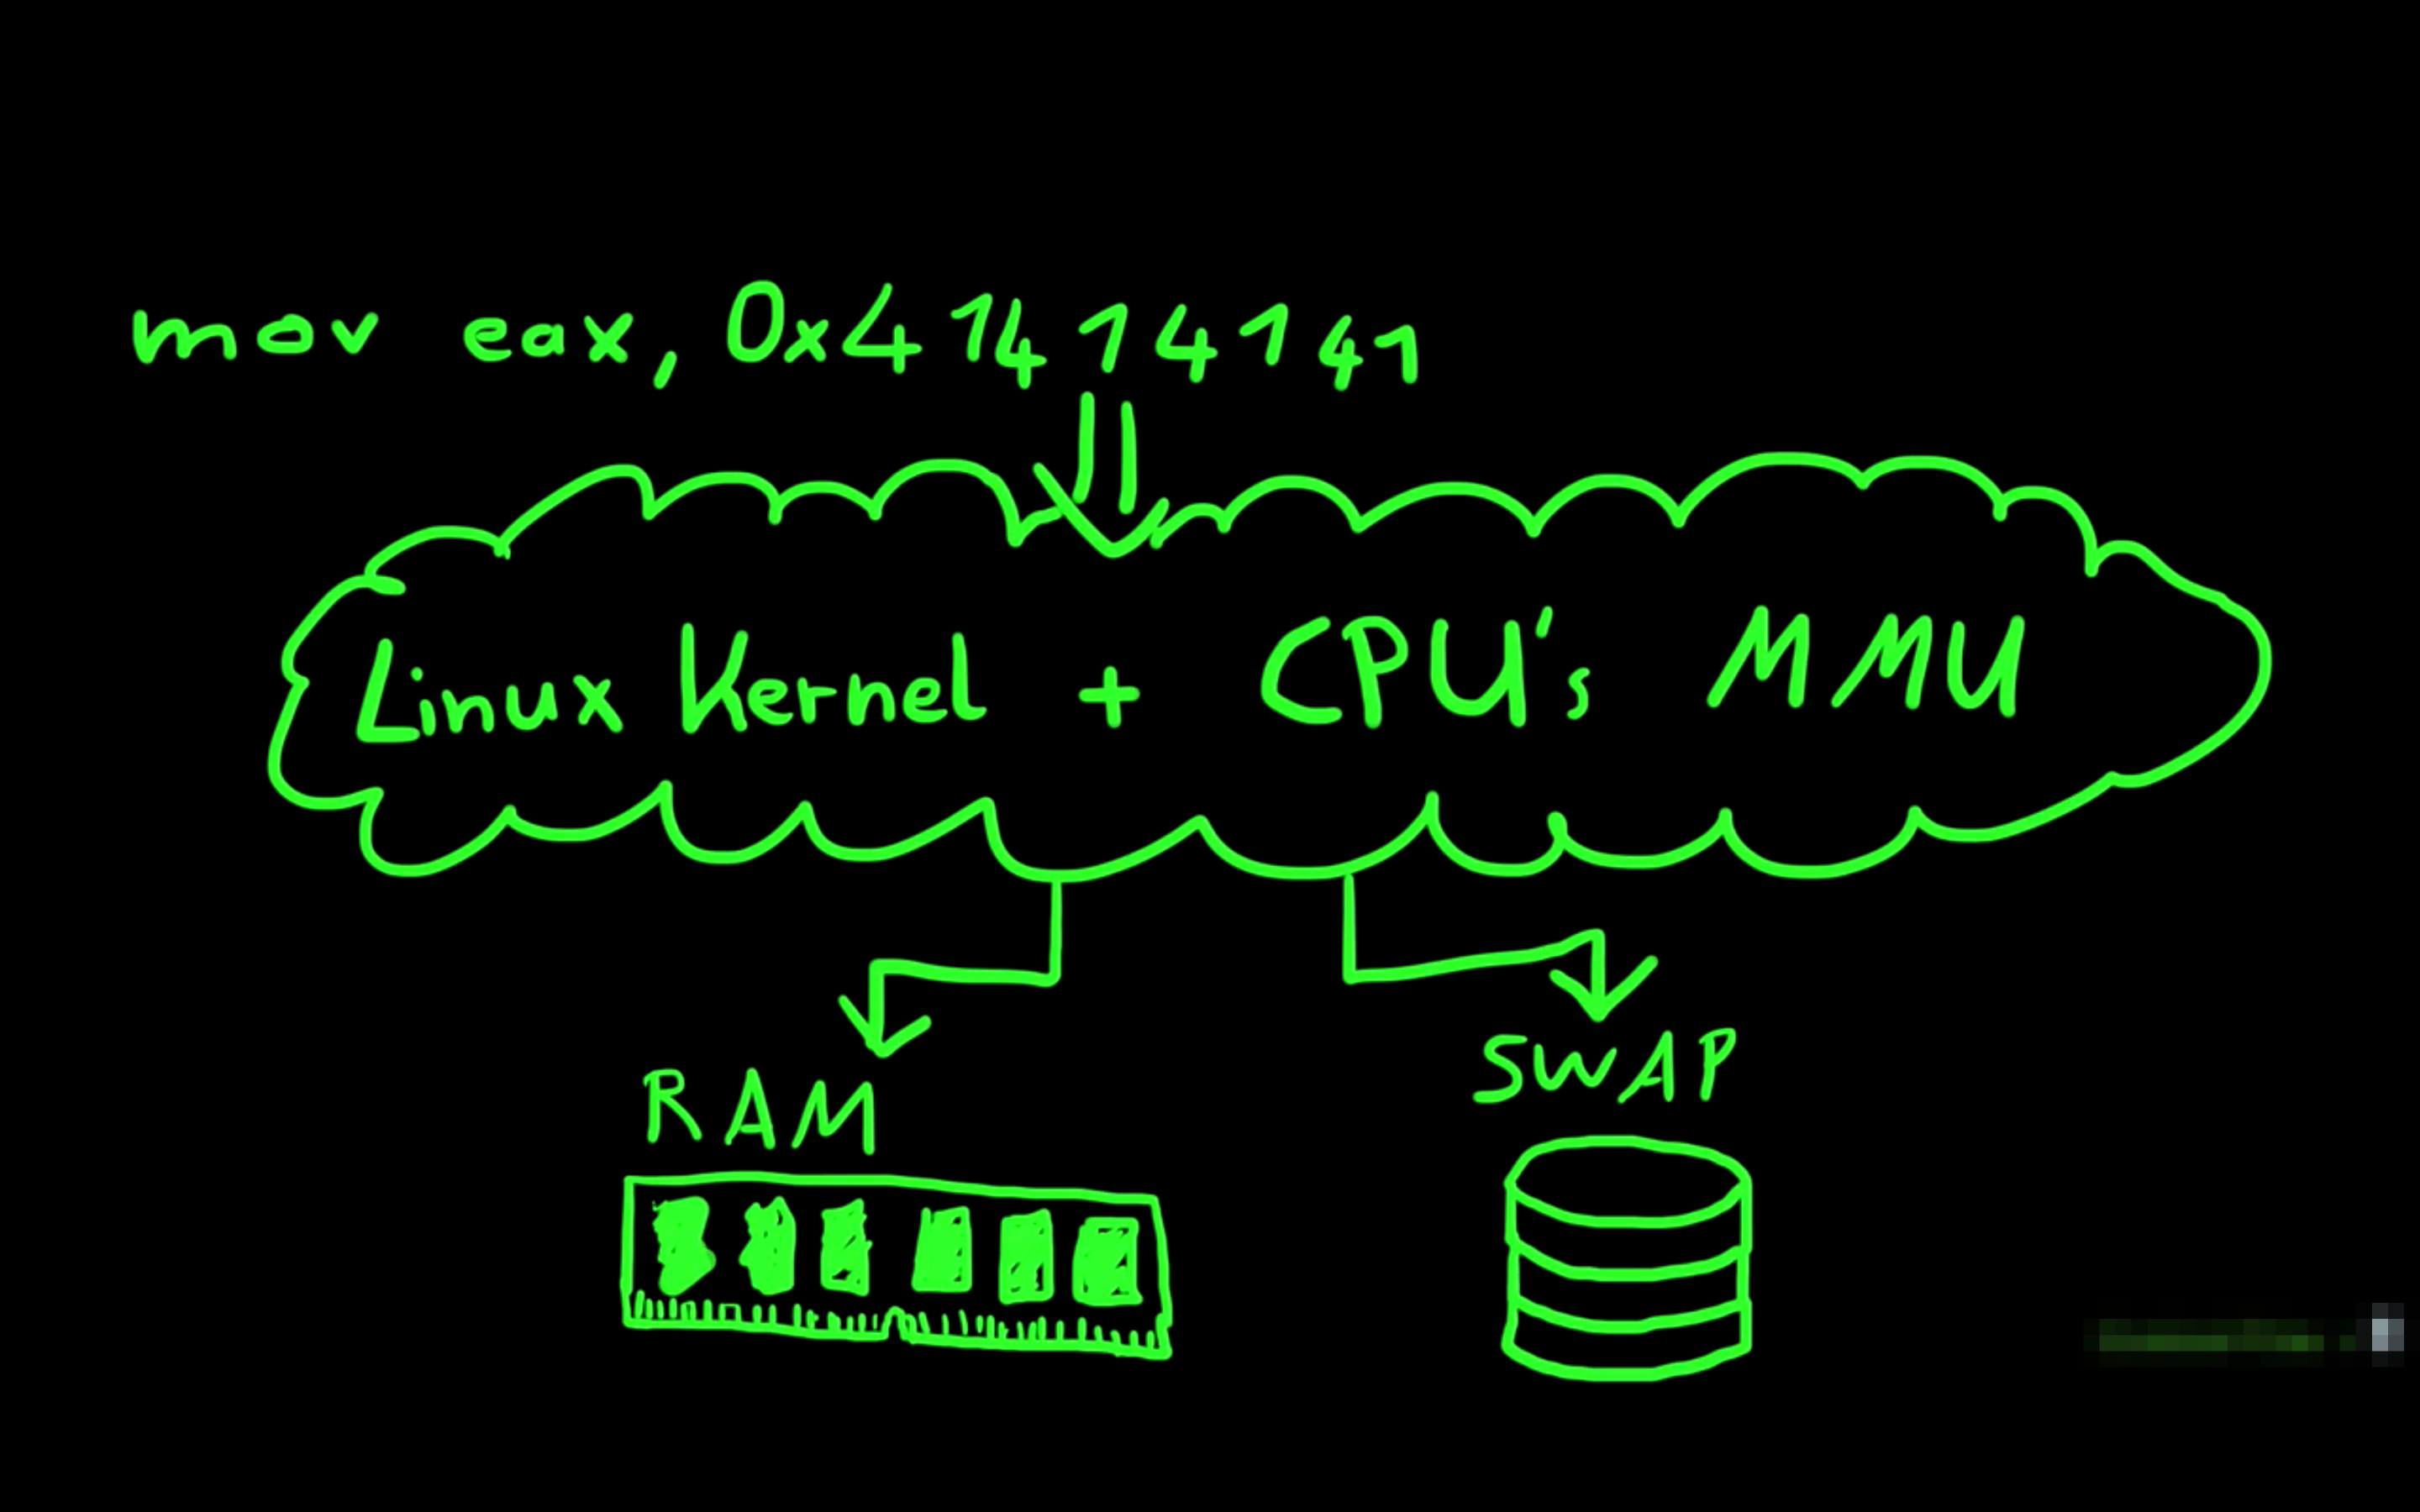 mov eax, 0x41414141
Linux Kernel + CPU's MMU
RAM
SWAP